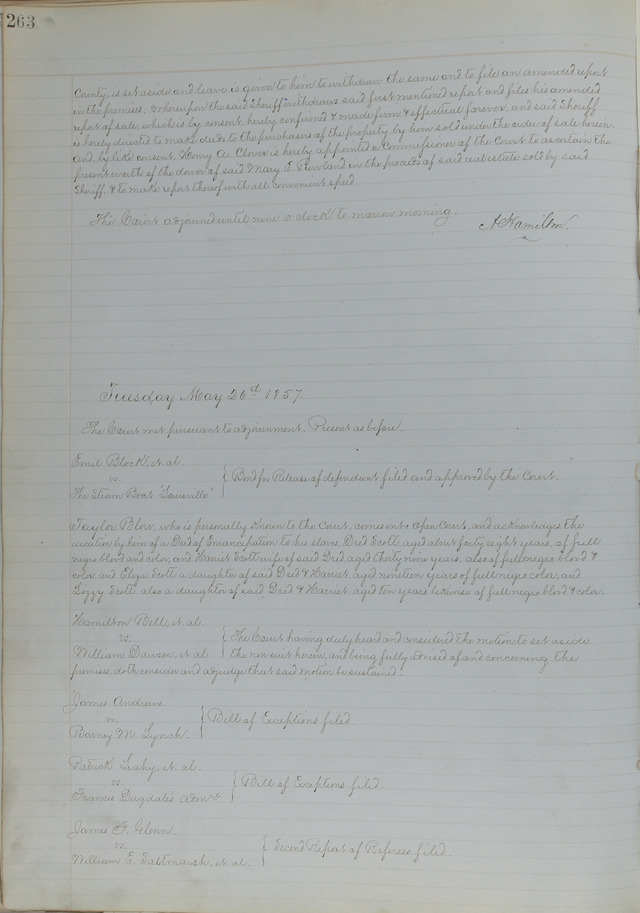 263
County, is set aside and leave is given to him to withdraw the same and to file an amended report
in the premises; Whereupon the said Sheriff withdraws said first mentioned report and files his amended
report of sale, which is by consent hereby confirmed & made firm & effectual forever, and said Sheriff
is hereby directed to make deeds to the purchasers of the property by him sold under the order of sale herein.
and, by like consent, Henry A. Clover is hereby appointed a Commissioner of the Court to ascertain the
present worth of the dower of said Mary E. Rowland in the proceeds of said real estate sold by said
Sheriff, & to make report thereof with all convenient speed.
The Court adjourned until nine o clock to morrow morning.
A Hamilton.
Tuesday May 26th 1857.
The Court met pursuant to adjournment. Present as before.
Emil Block, et. al.
vs.
The Steam Boat "Louisville"
Bond for Release of defendant filed and approved by the Court.
Taylor Blow, who is personally known to the Court, comes into open Court, and acknowledges the
execution by him of a Deed of Emancipation to his slaves, Dred Scott, aged about forty eight years, of full
negro blood and color, and Harriet Scott wife of said Dred, aged thirty nine years, also of full negro blood &
color, and Eliza Scott a daughter of said Dred & Harriet, aged nineteen years of full negro color, and
Lizzy Scott also a daughter of said Dred & Harriet, aged ten years likewise of full negro blood & color.
Hamilton Bell, et. al.
vs.
William Dawson, et. al.
The Court having duly heard and considered the motion to set aside
the non suit herein, and being fully advised of and concerning the
premises, doth consider and adjudge that said motion be sustained.
James Andrews.
vs.
Barney M. Lynch.
Bill of Exceptions filed.
Patrick Leahy, et. al.
vs.
Francis Dugdale's
Bill of Exceptions filed.
James F. Glenn.
vs.
William E. et. al.
Second Report of Referees filed.